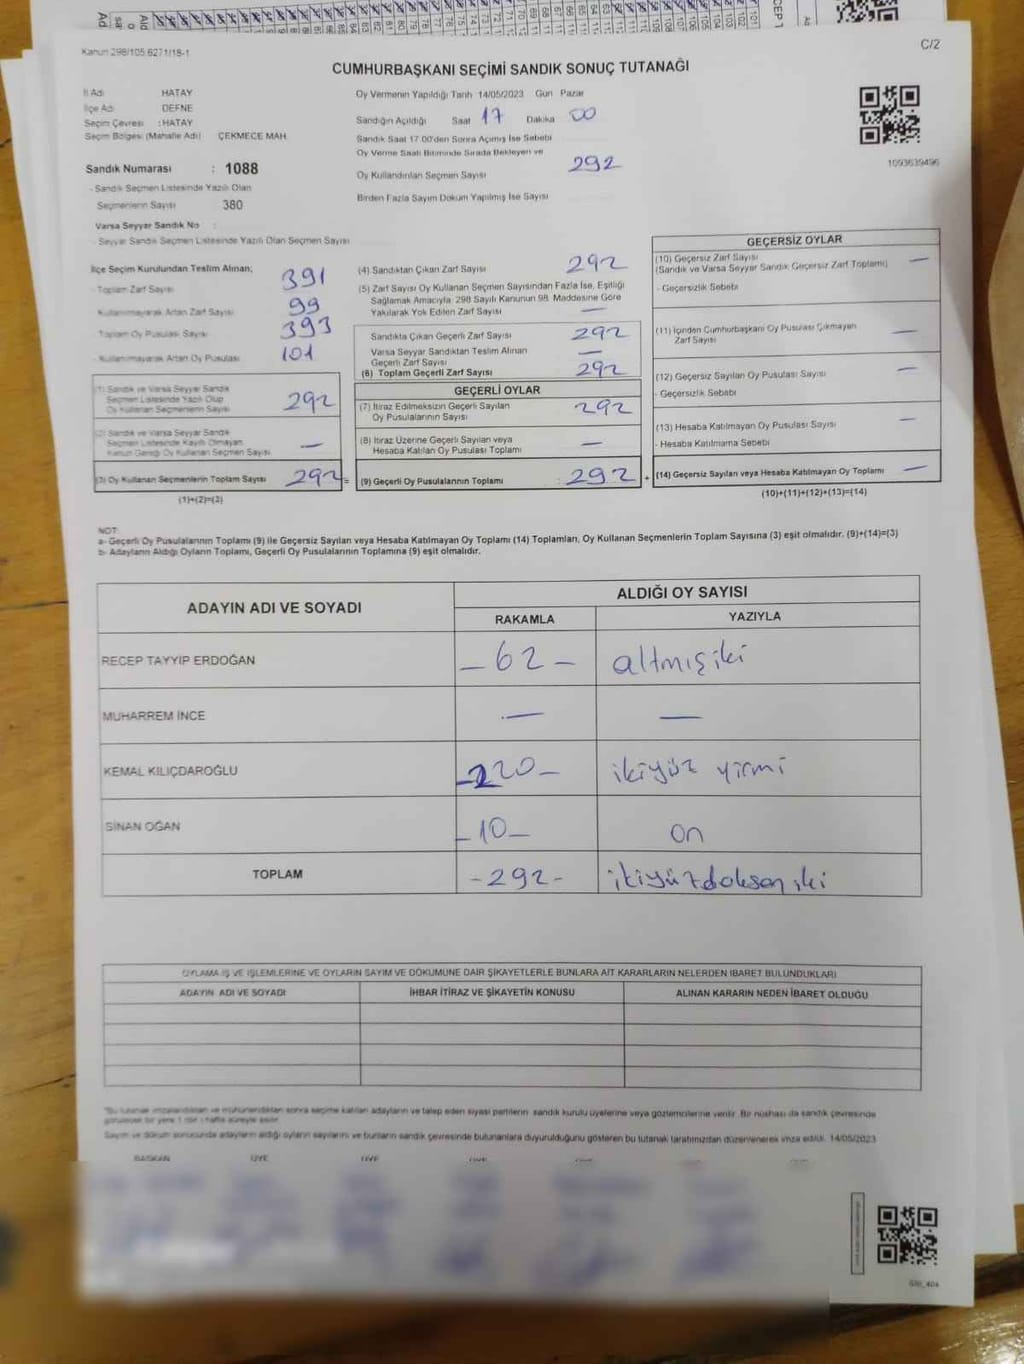 Kanun 298/105 6271/18-1
C/2
CUMHURBAŞKANI SEÇİMİ SANDIK SONUÇ TUTANAĞI
İl Adı HATAY
İlçe Adı DEFNE
Seçim Çevresi : HATAY
Seçim Bölgesi (Mahalle Adı) ÇEKMECE MAH.
Oy Vermenin Yapıldığı Tarih 14/05/2023 Gün Pazar
Sandığın Açıldığı Saat 17 Dakika 00
Sandık Saat 17.00'den Sonra Açılmış İse Sebebi
Oy Verme Saati Bitiminde Sırada Bekleyen ve
Oy Kullandırılan Seçmen Sayısı 292
Birden Fazla Sayım Döküm Yapılmış İse Sayısı
1093639496
Sandık Numarası : 1088
- Sandık Seçmen Listesinde Yazılı Olan
Seçmenlerin Sayısı 380
Varsa Seyyar Sandık No :
- Seyyar Sandık Seçmen Listesinde Yazılı Olan Seçmen Sayısı
İlçe Seçim Kurulundan Teslim Alınan;
- Toplam Zarf Sayısı 391
- Kullanılmayarak Artan Zarf Sayısı 99
- Toplam Oy Pusulası Sayısı 393
- Kullanılmayarak Artan Oy Pusulası 101
(1) Sandık ve Varsa Seyyar Sandık
Seçmen Listesinde Yazılı Olup
Oy Kullanan Seçmenlerin Sayısı 292
(2) Sandık ve Varsa Seyyar Sandık
Seçmen Listesinde Kayıtlı Olmayan
Kanun Gereği Oy Kullanan Seçmen Sayısı —
(3) Oy Kullanan Seçmenlerin Toplam Sayısı 292 =
(1)+(2)=(3)
(4) Sandıktan Çıkan Zarf Sayısı 292
(5) Zarf Sayısı Oy Kullanan Seçmen Sayısından Fazla İse, Eşitliği
Sağlamak Amacıyla 298 Sayılı Kanunun 98. Maddesine Göre
Yakılarak Yok Edilen Zarf Sayısı —
Sandıkta Çıkan Geçerli Zarf Sayısı 292
Varsa Seyyar Sandıktan Teslim Alınan
Geçerli Zarf Sayısı —
(6) Toplam Geçerli Zarf Sayısı 292
GEÇERLİ OYLAR
(7) İtiraz Edilmeksizin Geçerli Sayılan
Oy Pusulalarının Sayısı 292
(8) İtiraz Üzerine Geçerli Sayılan veya
Hesaba Katılan Oy Pusulası Toplamı —
(9) Geçerli Oy Pusulalarının Toplamı : 292 +
GEÇERSİZ OYLAR
(10) Geçersiz Zarf Sayısı —
(Sandık ve Varsa Seyyar Sandık Geçersiz Zarf Toplamı)
- Geçersizlik Sebebi
(11) İçinden Cumhurbaşkanı Oy Pusulası Çıkmayan
Zarf Sayısı —
(12) Geçersiz Sayılan Oy Pusulası Sayısı —
- Geçersizlik Sebebi
(13) Hesaba Katılmayan Oy Pusulası Sayısı —
- Hesaba Katılmama Sebebi
(14) Geçersiz Sayılan veya Hesaba Katılmayan Oy Toplamı —
(10)+(11)+(12)+(13)=(14)
NOT:
a- Geçerli Oy Pusulalarının Toplamı (9) ile Geçersiz Sayılan veya Hesaba Katılmayan Oy Toplamı (14) Toplamları, Oy Kullanan Seçmenlerin Toplam Sayısına (3) eşit olmalıdır. (9)+(14)=(3)
b- Adayların Aldığı Oyların Toplamı, Geçerli Oy Pusulalarının Toplamına (9) eşit olmalıdır.
ADAYIN ADI VE SOYADI ALDIĞI OY SAYISI
RAKAMLA YAZIYLA
RECEP TAYYİP ERDOĞAN – 62 – altmışiki
MUHARREM İNCE — —
KEMAL KILIÇDAROĞLU – 220 – ikiyüz yirmi
SİNAN OĞAN – 10 – on
TOPLAM - 292 - ikiyüzdoksan iki
OYLAMA İŞ VE İŞLEMLERİNE VE OYLARIN SAYIM VE DÖKÜMÜNE DAİR ŞİKAYETLERLE BUNLARA AİT KARARLARIN NELERDEN İBARET BULUNDUKLARI
ADAYIN ADI VE SOYADI İHBAR İTİRAZ VE ŞİKAYETİN KONUSU ALINAN KARARIN NEDEN İBARET OLDUĞU
*Bu tutanak imzalandıktan ve mühürlendikten sonra seçime katılan adayların ve talep eden siyasi partilerin sandık kurulu üyelerine veya gözlemcilerine verilir. Bir nüshası da sandık çevresinde
Sayım ve döküm sonucunda adayların aldığı oyların sayılarını ve bunların sandık çevresinde bulunanlara duyurulduğunu gösteren bu tutanak tarafımızdan düzenlenerek imza edildi. 14/05/2023
BAŞKAN ÜYE ÜYE